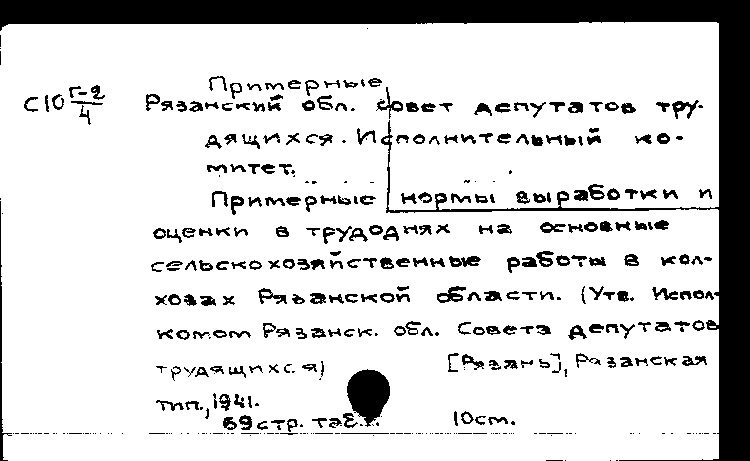 Примерные
С10 Г-2/4 Рязанский обл. совет депутатов тру-
дящихся. Исполнительный ко-
митет.
Примерные нормы выработки и
оценки в трудоднях на основные
сельскохозяйственные работы в кол-
хозах Рязанской области. (Утв. Испол-
комом Рязанск. обл. Совета депутатов
трудящихся) [Рязань], Рязанская
тип., 1941.
69 стр. таб. 10 см.